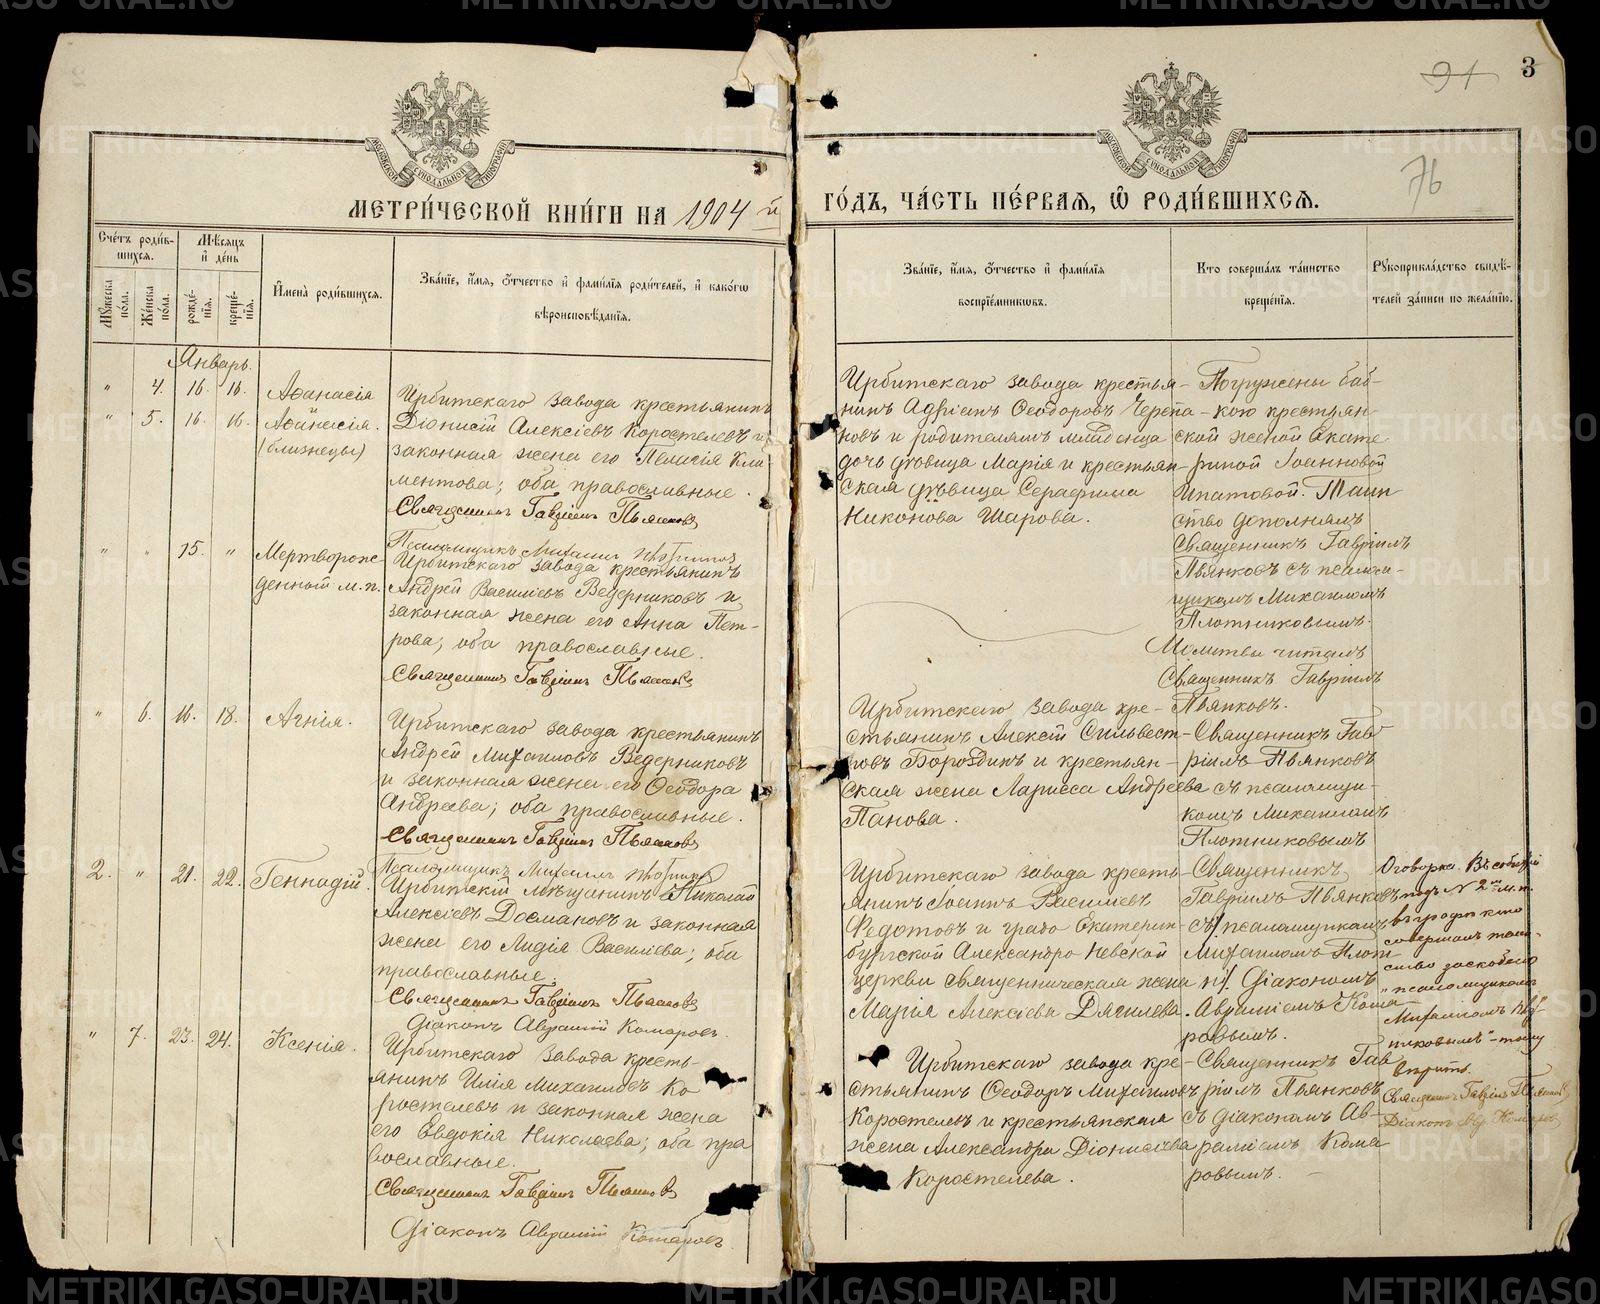 91
3
76
МЕТРИ́ЧЕСКОЙ КНИ́ГИ НА 1904 й
ГО́ДЪ, ЧА́СТЬ ПЕ́РВАЯ, Ѽ РОДИ́ВШИХСЯ.
Сче́тъ роди́в-
шихся.
Мѣ́сяцъ
и҆ де́нь
Му́жеска
по́ла.
Же́нска
по́ла.
рожде́-
нїя.
креще́-
нїя.
И҆мена̀ роди́вшихся.
Зва́нїе, и҆́мя, ѻ҆́тчество и҆ фами́лїя роди́телей, и҆ како́гѡ
вѣроисповѣ́данїя.
Зва́нїе, и҆́мя, ѻ҆́тчество и҆ фами́лїя
воспрїе́мниковъ.
Кто соверша́лъ та́инство
креще́нїя.
Рукоприкла́дство свидѣ́-
телей за́писи по жела́нїю.
Январь.
" 4. 16. 16. Аѳанасія
" 5. 16. 16. Аѳанасія.
(близнецы)
Ирбитскаго завода крестьянинъ
Діонисій Алексіевъ Коростелевъ и
законная жена его Пелагія Кли-
ментова; оба православные.
Священникъ Гавріилъ Пьянковъ
Псаломщикъ Михаилъ Плотников
Ирбитскаго завода крестья-
нинъ Адріанъ Ѳеодоровъ Черепа-
новъ и родителямъ младенца
дочь дѣвица Марія и крестьян-
ская дѣвица Серафима
Никонова Шарова.
Погружены баб-
кою крестьян-
ской женой Екате-
риной Іоанновой
Ипатовой. Таин-
ство дополнялъ
Священникъ Гавріилъ
Пьянковъ съ псалом-
щикомъ Михаиломъ
Плотниковымъ.
" " 15. " Мертворож-
денный м.п.
Ирбитскаго завода крестьянинъ
Андрей Василіевъ Ведерниковъ и
законная жена его Анна Пет-
рова; оба православные.
Священникъ Гавріилъ Пьянковъ
Молитвы читалъ
Священникъ Гавріилъ
Пьянковъ.
" 6. 16. 18. Агнія.
Ирбитскаго завода крестьянинъ
Андрей Михаиловъ Ведерниковъ
и законная жена его Ѳеодора
Андреева; оба православные.
Священникъ Гавріилъ Пьянковъ
Псаломщикъ Михаилъ Плотников
Ирбитскаго завода кре-
стьянинъ Алексій Сильвест-
ровъ Бороздинъ и крестьян-
ская жена Ларисса Андреева
Панова.
Священникъ Гав-
ріилъ Пьянковъ
съ псаломщи-
комъ Михаиломъ
Плотниковымъ
2. " 21. 22. Геннадій.
Ирбитскій мѣщанинъ Николай
Алексіевъ Досмановъ и законная
жена его Лидія Василіева; оба
православные.
Священникъ Гавріилъ Пьянковъ
Діаконъ Аврамій Комаровъ
Ирбитскаго завода кресть-
янинъ Іоаннъ Василіевъ
Ѳедотовъ и градо Екатерин-
бургской Александро Невской
церкви священническая жена
Марія Алексіева Дягилева.
Священникъ
Гавріилъ Пьянковъ
съ псаломщикомъ
Михаиломъ Плот-
Діакономъ
Аврамiемъ Кома-
ровымъ.
Оговорка. Въ событіи
подъ № 2 м.п.
въ графѣ кто
совершалъ таин-
ство заскоблено
"псаломщикомъ
Михаиломъ Плот-
никовымъ" - тому
вѣрить.
Священникъ Гавріилъ Пьянковъ
Діаконъ Авр. Комаровъ
" 7. 23. 24. Ксенія.
Ирбитскаго завода кресть-
янинъ Илія Михаиловъ Ко
ростелевъ и законная жена
его Евдокія Николаева; оба пра
вославные.
Священникъ Гавріилъ Пьянковъ
Діаконъ Аврамій Комаровъ
Ирбитскаго завода кре-
стьянинъ Ѳеодоръ Михаиловъ
Коростелевъ и крестьянская
жена Александра Діонисіева
Коростелева.
Священникъ Гав
ріилъ Пьянковъ
съ діакономъ Ав-
раміемъ Кома
ровымъ.
METRIKI.GASO-URAL.RU